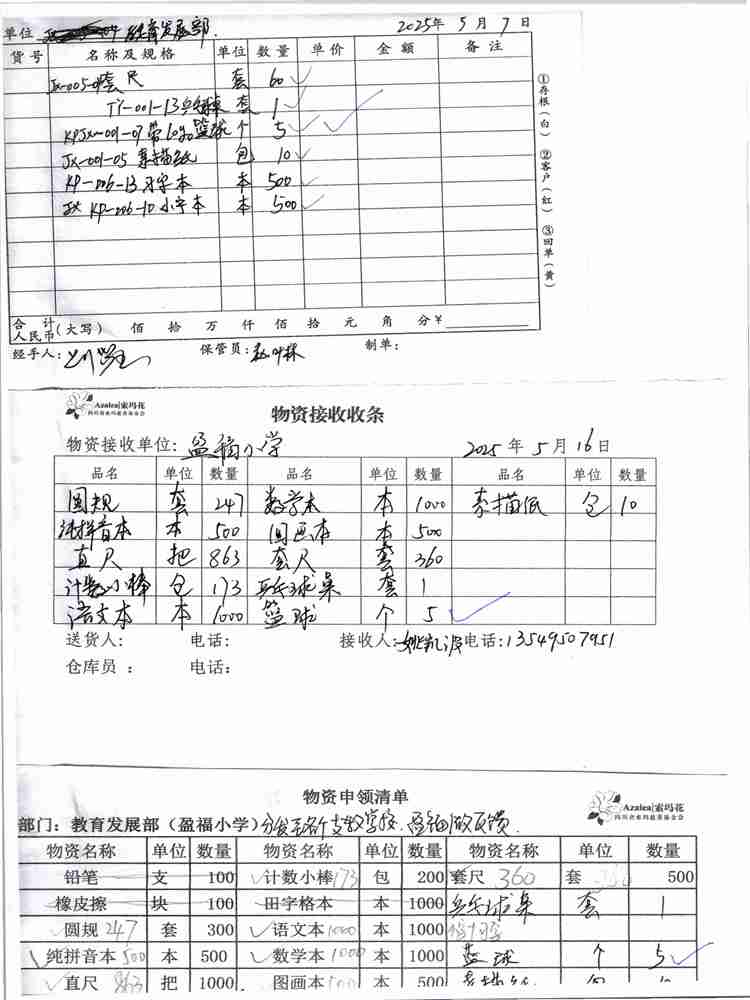 单位 教育发展部 2025年 5月 7日
货号 名称及规格 单位 数量 单价 金额 备注
JX-005-04套尺 套 60
TY-001-13乒乓球桌 套 1
KPJX-001-07带log篮球 个 5
JX-001-05 素描纸 包 10
KP-006-13习字本 本 500
KP-006-10小字本 本 500
①存根(白) ②客户(红) ③回单(黄)
合计人民币(大写) 佰 拾 万 仟 佰 拾 元 角 分¥
经手人: 保管员: 制单:
Azalea|索玛花
四川省索玛慈善基金会
物资接收收条
物资接收单位: 盈福小学 2025年5月16日
品名 单位 数量 品名 单位 数量 品名 单位 数量
圆规 套 247 数学本 本 1000 素描纸 包 10
纯拼音本 本 500 图画本 本 500
直尺 把 863 套尺 套 360
计数小棒 包 173 乒乓球桌 套 1
语文本 本 1000 篮球 个 5
送货人: 电话: 接收人:姚凯波 电话:13549507951
仓库员: 电话:
物资申领清单
Azalea|索玛花
四川省索玛慈善基金会
部门:教育发展部(盈福小学)分发至各个支教学校.盈福做反馈.
物资名称 单位 数量 物资名称 单位 数量 物资名称 单位 数量
铅笔 支 100 计数小棒 173 包 200 套尺 360 套 500
橡皮擦 块 100 田字格本 本 1000 乒乓球桌 套 1
圆规 247 套 300 语文本 1000 本 1000
纯拼音本 500 本 500 数学本 1000 本 1000 篮球 个 5
直尺 863 把 1000 图画本 500 本 500 素描纸 包 10